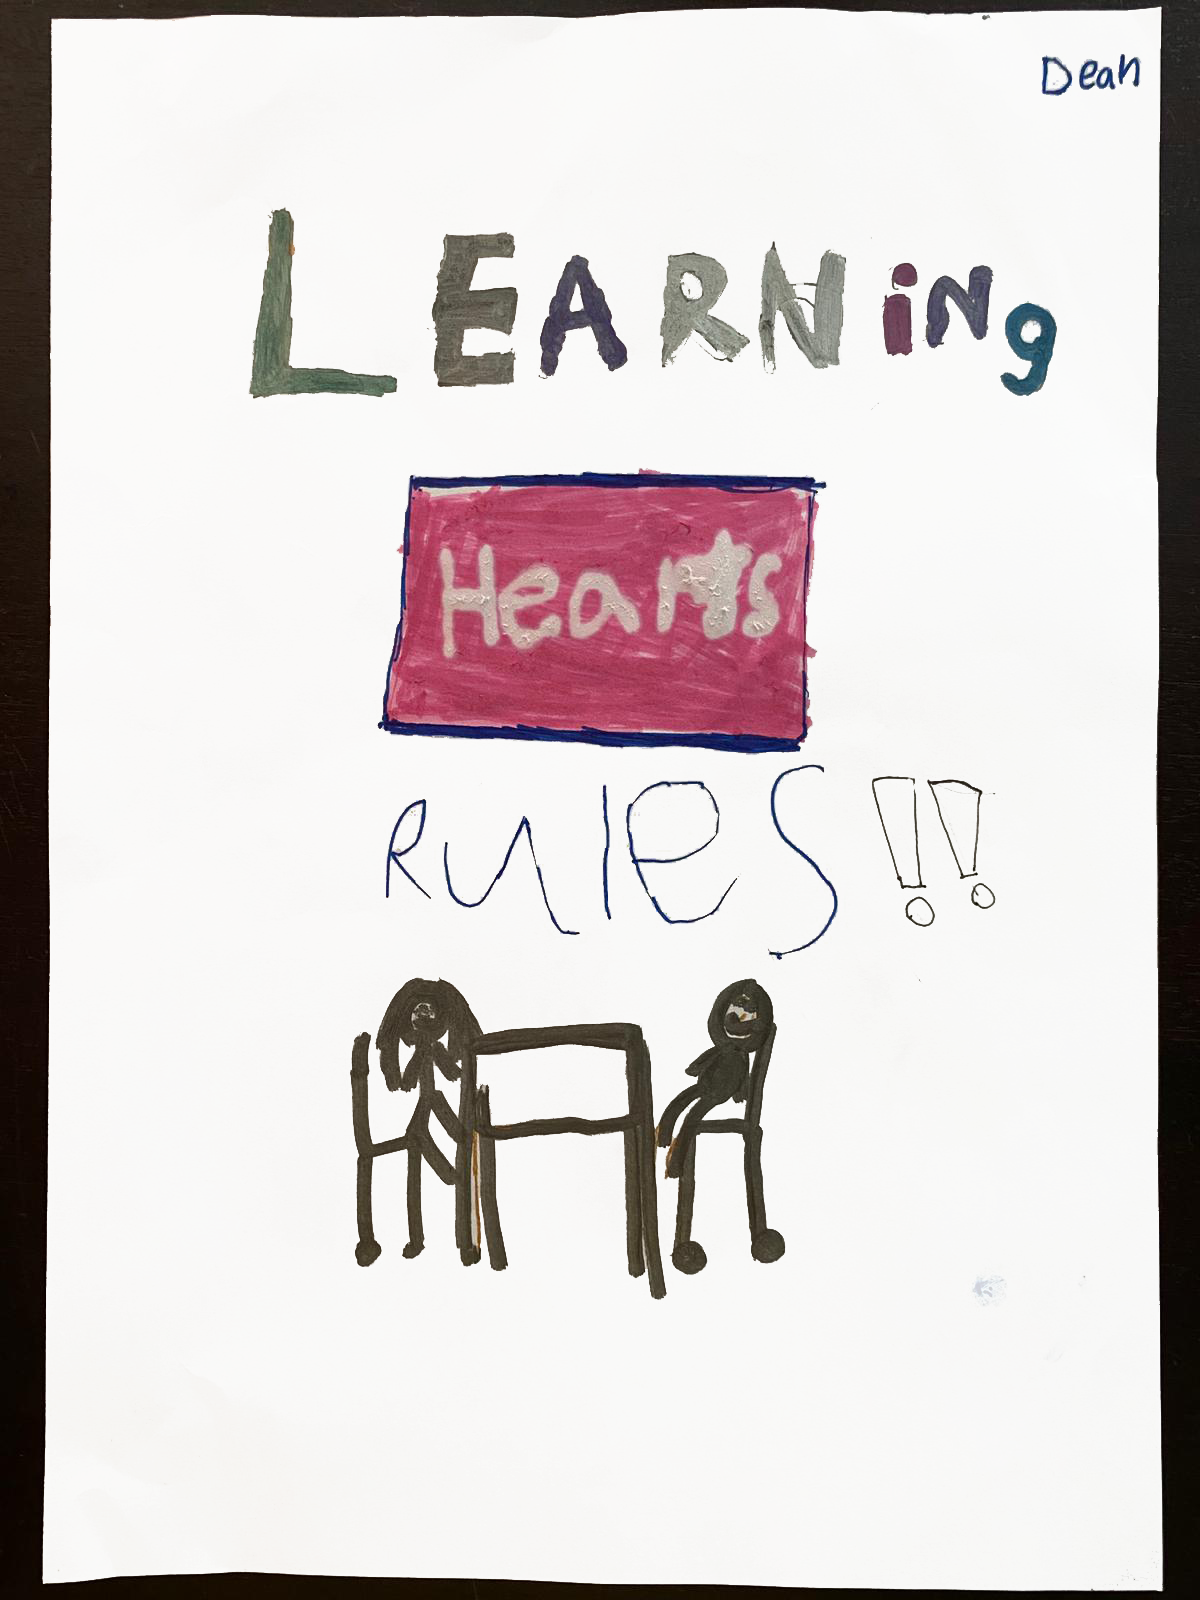 Dean
LEARNiNg
Hearts
RuleS!!